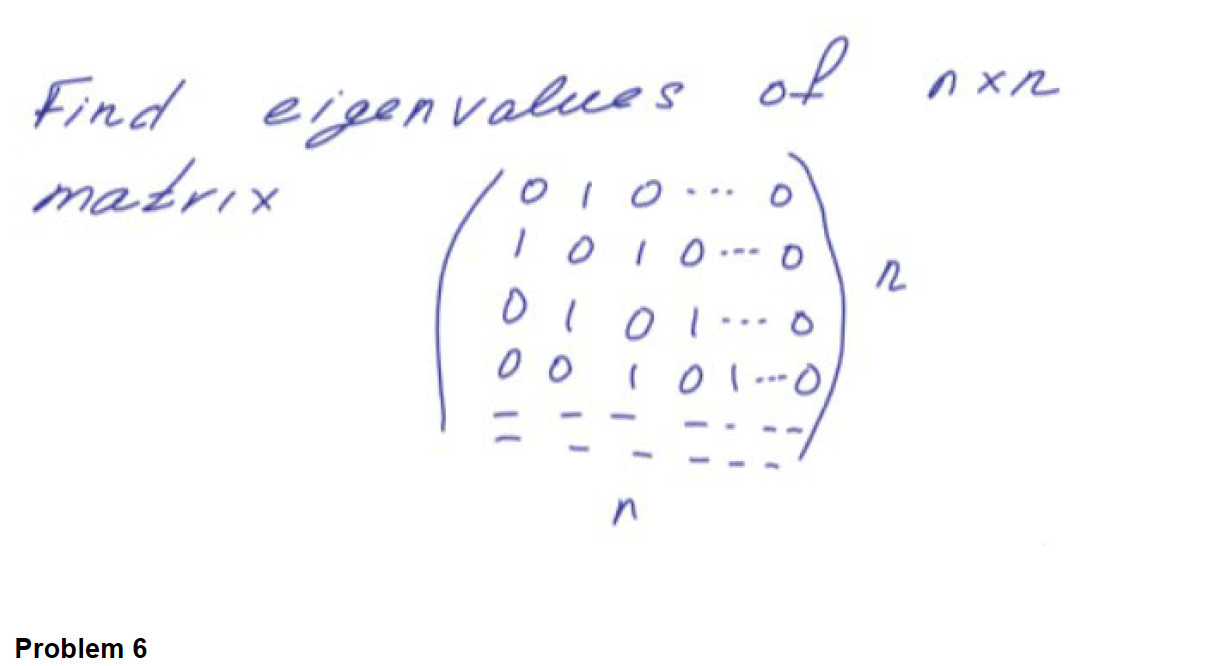 Find eigenvalues of n×n
matrix
0 1 0 ... 0
1 0 1 0 ... 0
n
0 1 0 1 ... 0
0 0 1 0 1 ... 0
n
Problem 6